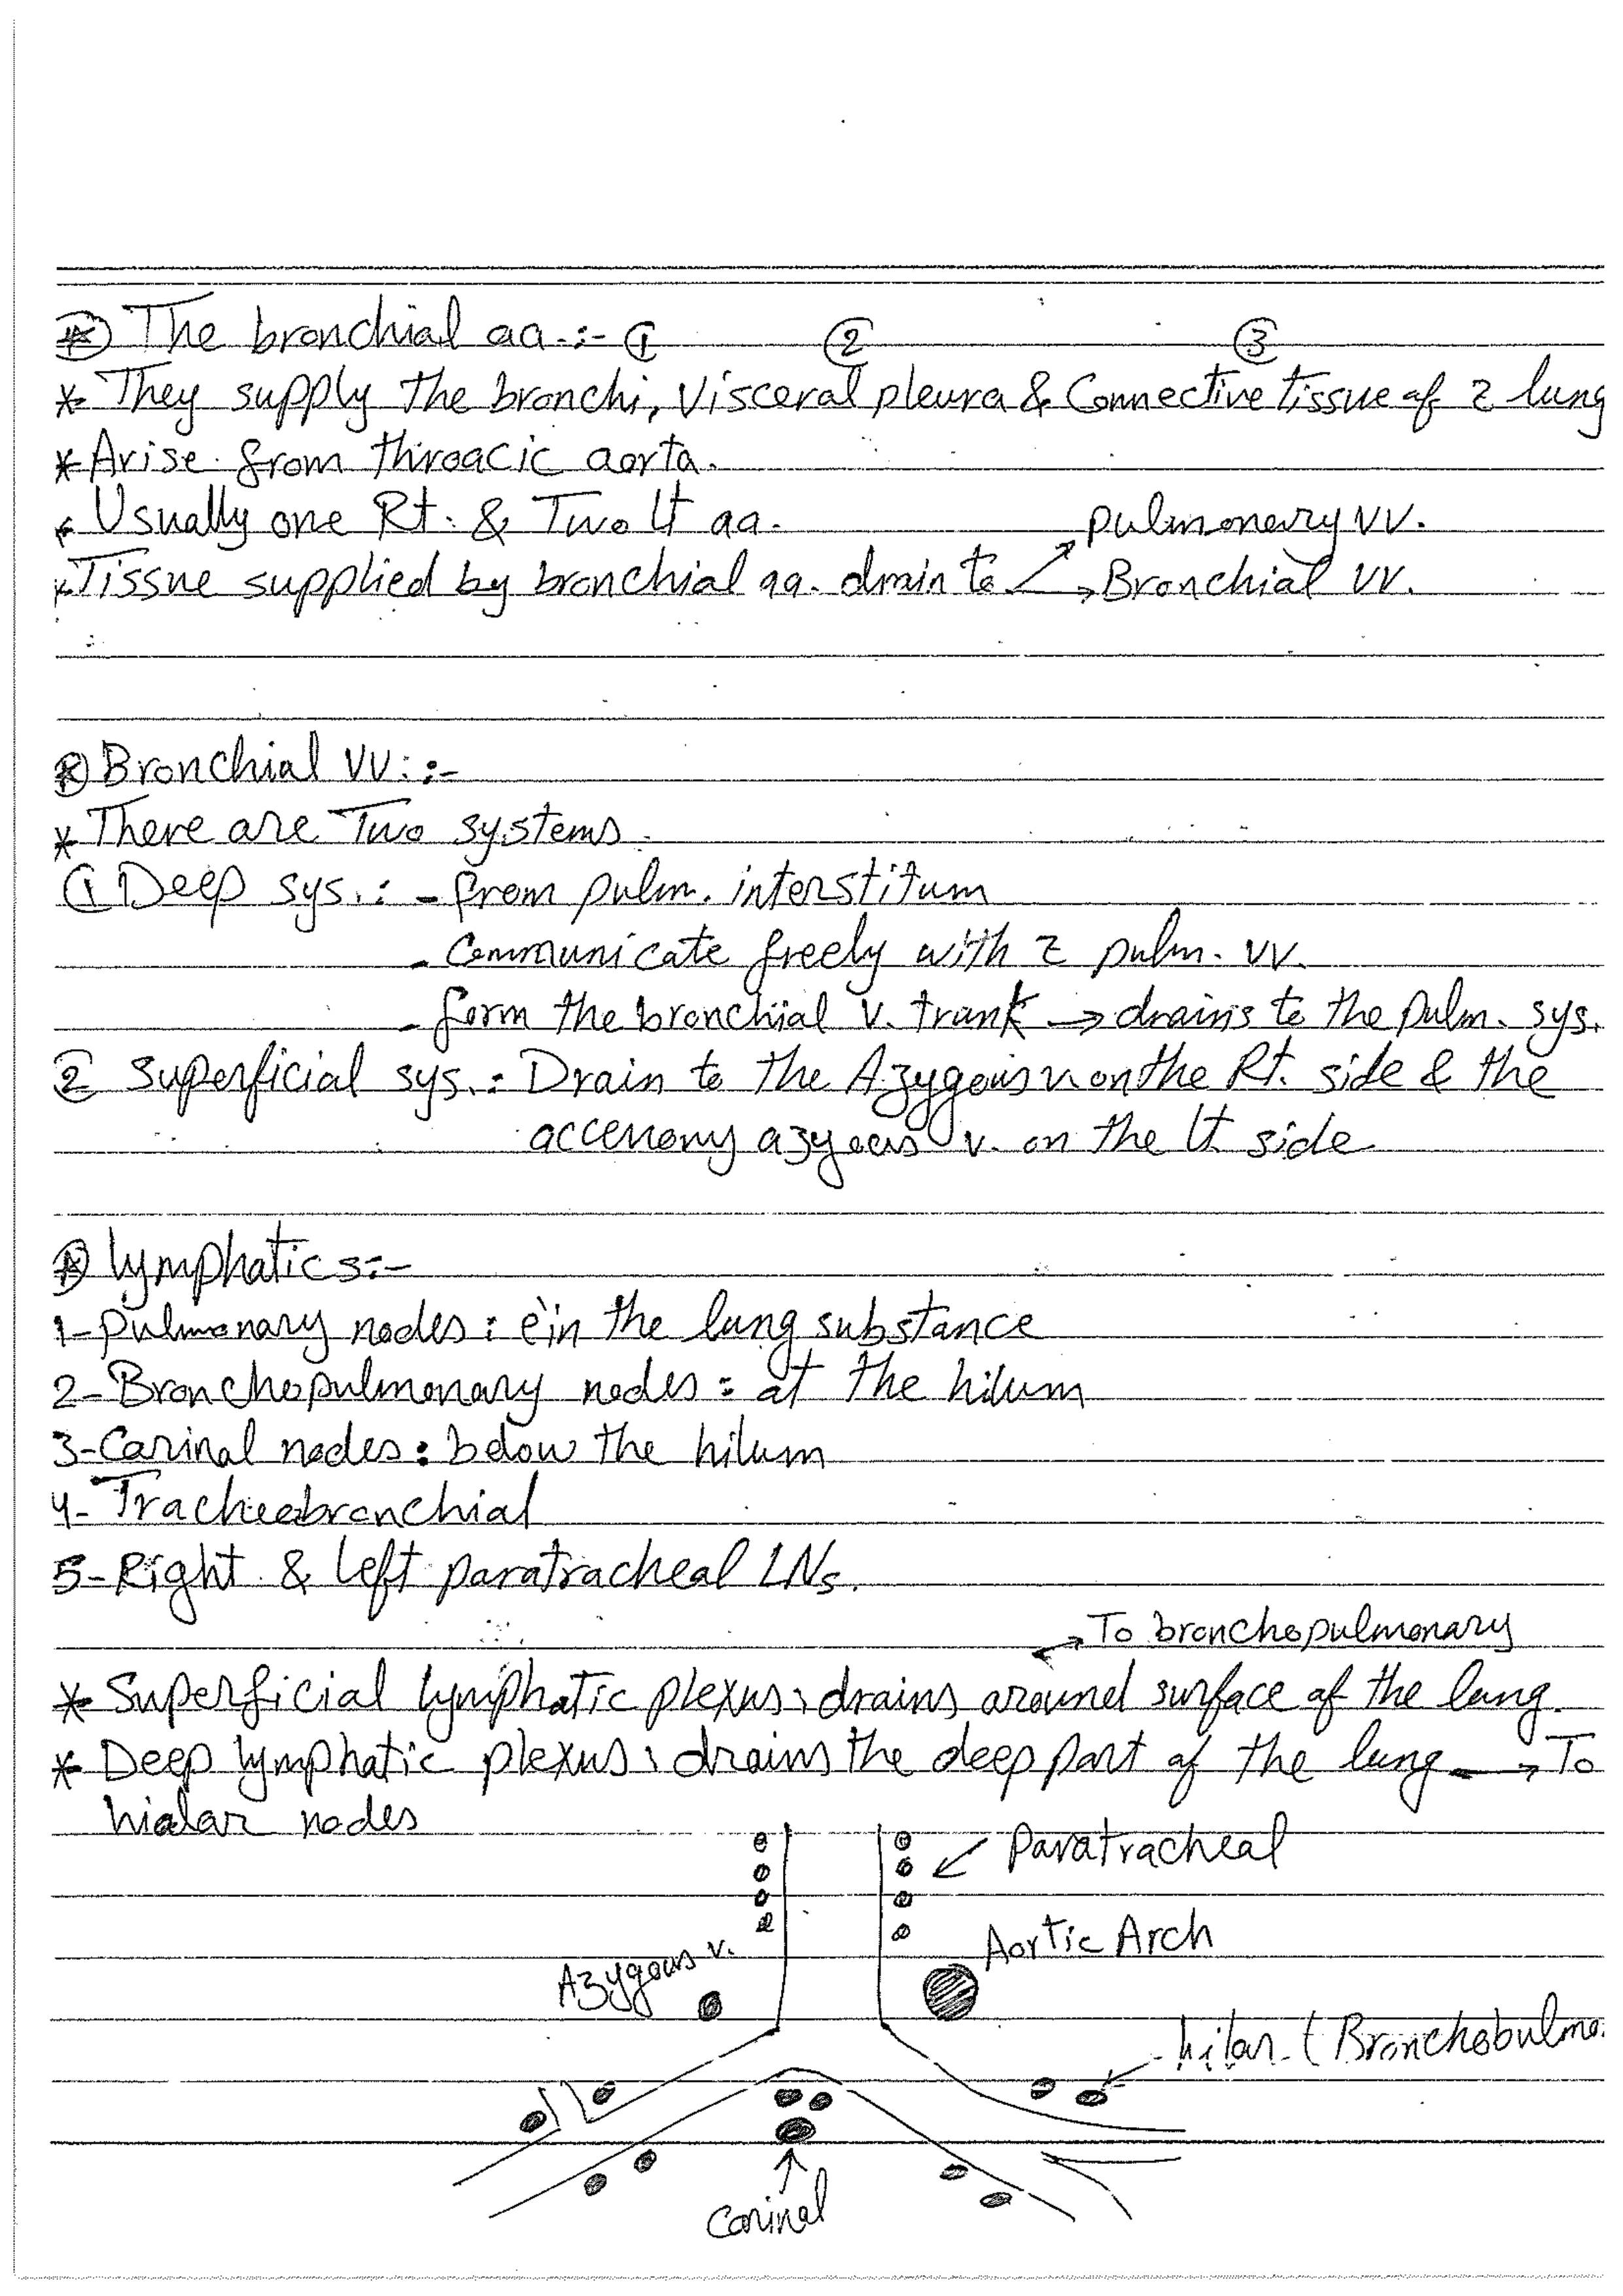 ⊛ The bronchial aa.:- ① ② ③
* They supply the bronchi, Visceral pleura & Connective tissue of z lung
* Arise from throacic aorta.
* Usually one Rt. & Two Lt aa.
pulmonary vv.
* Tissue supplied by bronchial aa. drain to → Bronchial vv.
⊛ Bronchial vv.:-
* There are Two systems.
① Deep sys.: - from pulm. interstitum
- Communicate freely with z pulm. vv.
- form the bronchial v. trunk → drains to the pulm. sys.
② Superficial sys.: Drain to the Azygous v. on the Rt. side & the
accenony azygous v. on the Lt side
⊛ lymphatics:-
1- pulmonary nodes: èin the lung substance
2- Bronchopulmonary nodes: at the hilum
3- Carinal nodes: below the hilum
4- Tracheobronchial
5- Right & left paratracheal LNs.
→ To bronchopulmonary
* Superficial lymphatic plexus: drains around surface of the lung.
* Deep lymphatic plexus: drains the deep part of the lung → To
hialar nodes
Paratracheal
Aortic Arch
Azygous v.
hilar (Bronchobulmo
Carinal